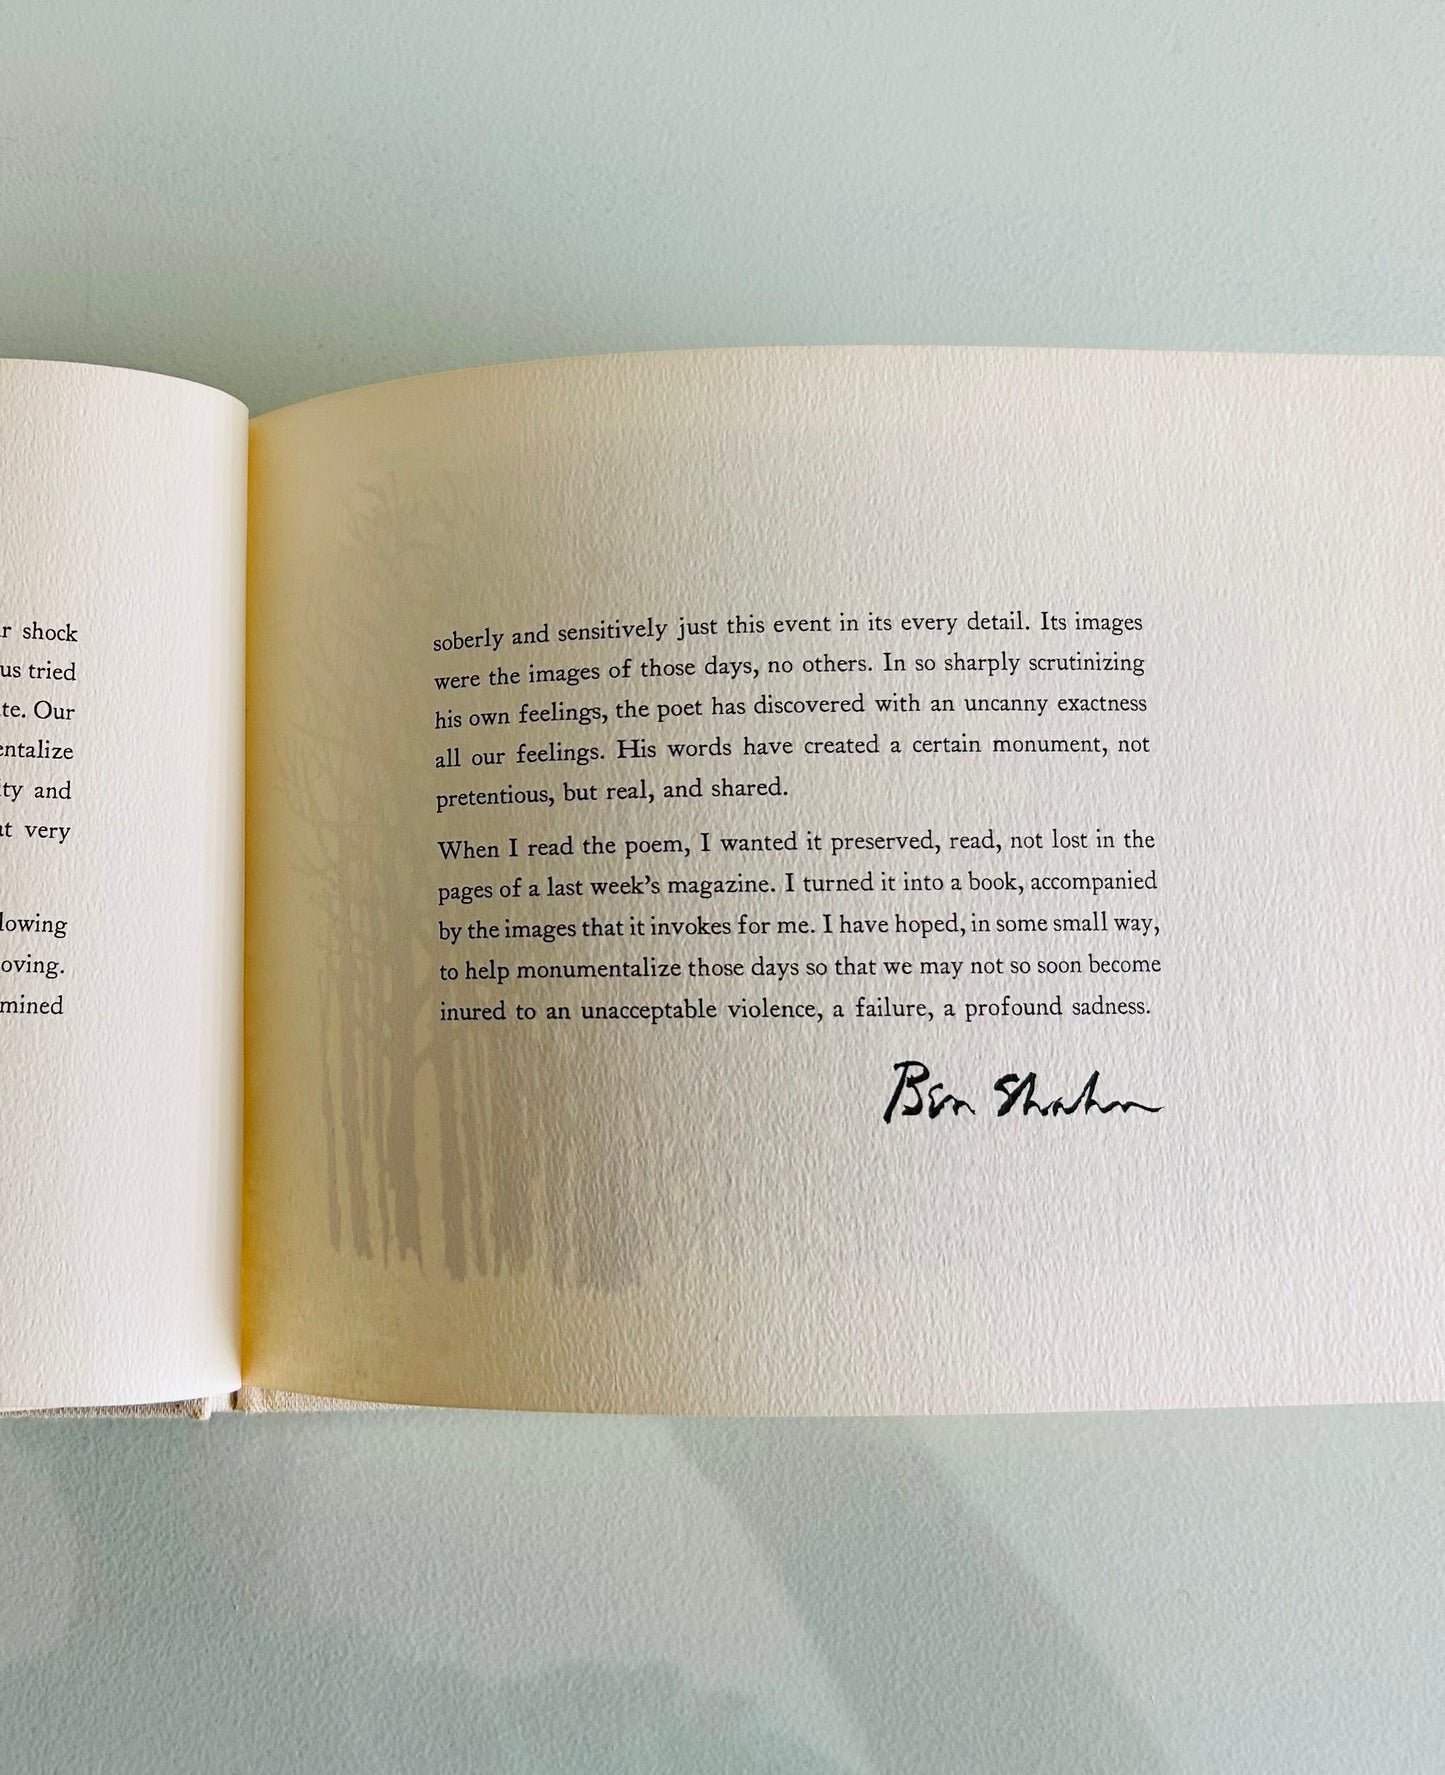 shock
us tried
Our
ty and
very
soberly and sensitively just this event in its every detail. Its images
were the images of those days, no others. In so sharply scrutinizing
his own feelings, the poet has discovered with an uncanny exactness
all our feelings. His words have created a certain monument, not
pretentious, but real, and shared.
When I read the poem, I wanted it preserved, read, not lost in the
pages of a last week's magazine. I turned it into a book, accompanied
by the images that it invokes for me. I have hoped, in some small way,
to help monumentalize those days so that we may not so soon become
inured to an unacceptable violence, a failure, a profound sadness.
Ben Shahn